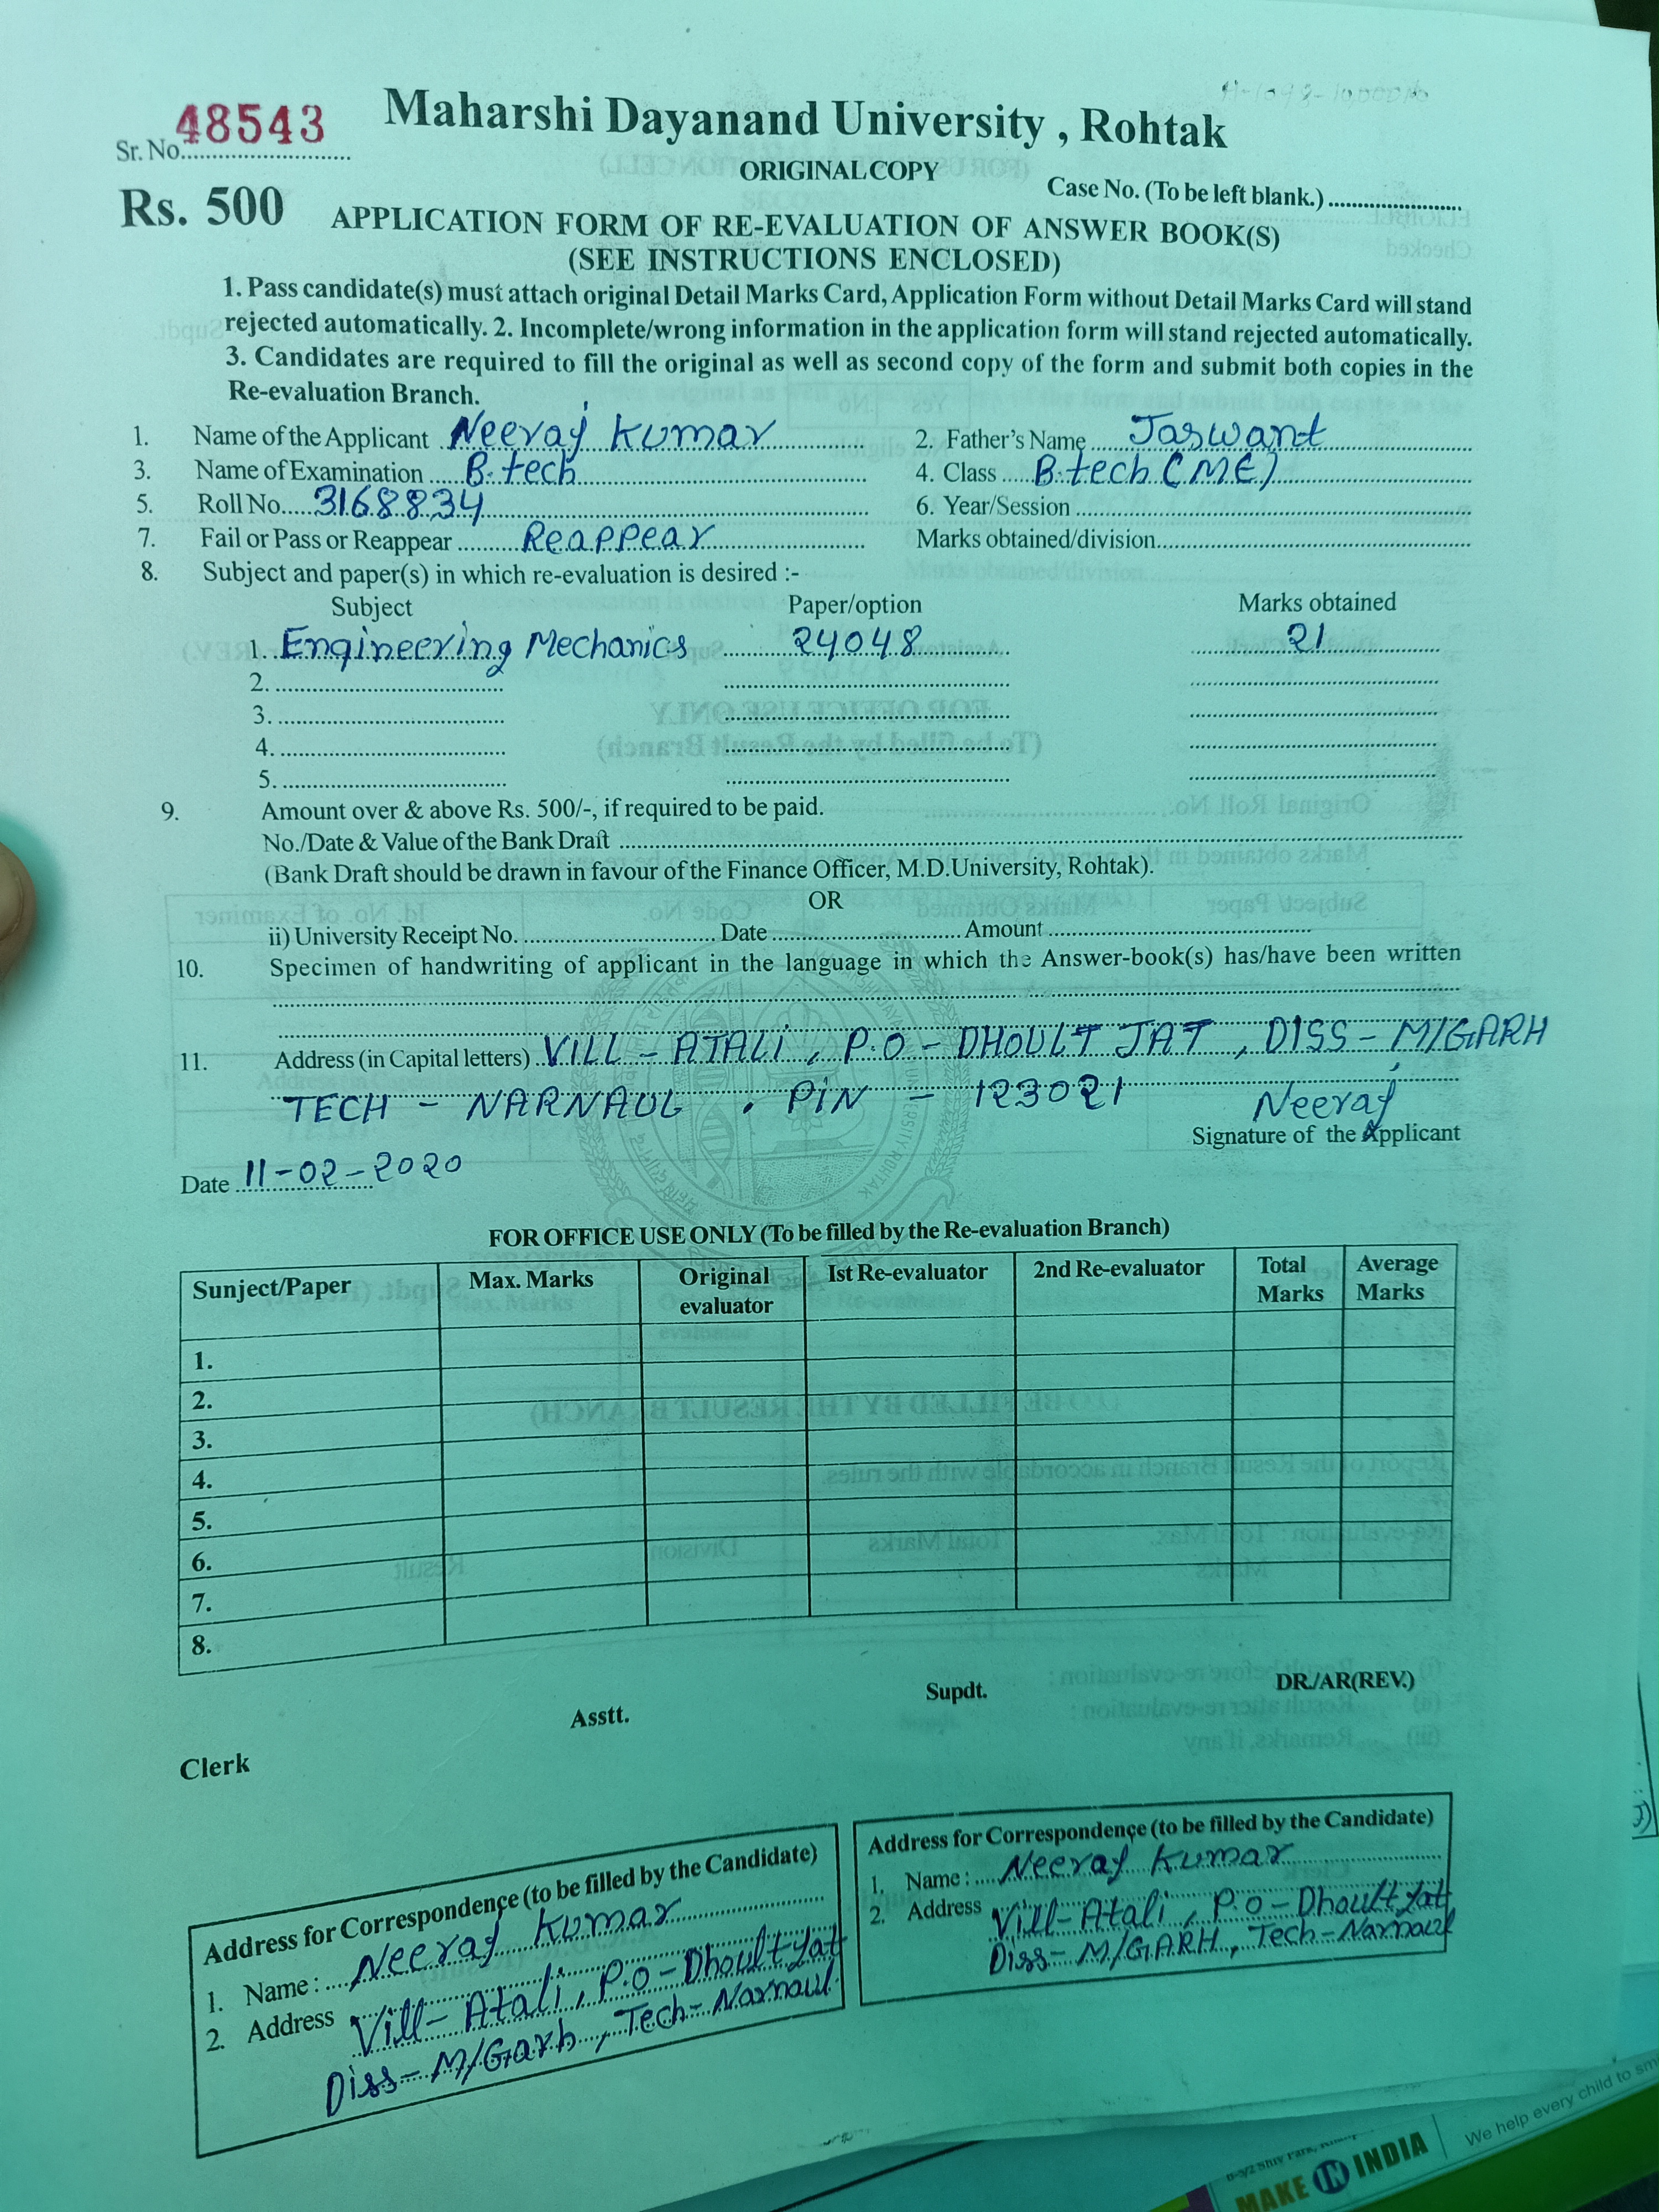 Sr. No. 48543
Maharshi Dayanand University , Rohtak
ORIGINAL COPY
Case No. (To be left blank.)
Rs. 500
APPLICATION FORM OF RE-EVALUATION OF ANSWER BOOK(S)
(SEE INSTRUCTIONS ENCLOSED)
1. Pass candidate(s) must attach original Detail Marks Card, Application Form without Detail Marks Card will stand
rejected automatically. 2. Incomplete/wrong information in the application form will stand rejected automatically.
3. Candidates are required to fill the original as well as second copy of the form and submit both copies in the
Re-evaluation Branch.
1. Name of the Applicant Neeraj Kumar 2. Father's Name Jaswant
3. Name of Examination B.tech 4. Class B.tech (ME)
5. Roll No. 3168834 6. Year/Session
7. Fail or Pass or Reappear Reappear Marks obtained/division
8. Subject and paper(s) in which re-evaluation is desired :-
Subject Paper/option Marks obtained
1. Engineering Mechanics 24048 21
2.
3.
4.
5.
9. Amount over & above Rs. 500/-, if required to be paid.
No./Date & Value of the Bank Draft
(Bank Draft should be drawn in favour of the Finance Officer, M.D.University, Rohtak).
OR
ii) University Receipt No. Date Amount
10. Specimen of handwriting of applicant in the language in which the Answer-book(s) has/have been written
11. Address (in Capital letters) VILL - ATALi, P.O - DHOULT JAT, DISS - M/GARH
TECH - NARNAUL . PiN - 123021
Neeraj
Signature of the Applicant
Date 11-02-2020
FOR OFFICE USE ONLY (To be filled by the Re-evaluation Branch)
Sunject/Paper Max. Marks Original evaluator Ist Re-evaluator 2nd Re-evaluator Total Marks Average Marks
1.
2.
3.
4.
5.
6.
7.
8.
Clerk Asstt. Supdt. DR./AR(REV.)
Address for Correspondence (to be filled by the Candidate)
1. Name : Neeraj Kumar
2. Address Vill- Atali, P.o - Dhoult Jat
Diss- M/Garh, Tech- Narnaul
Address for Correspondence (to be filled by the Candidate)
1. Name : Neeraj Kumar
2. Address Vill- Atali, P.o - Dhoult Jat
Diss- M/GARH, Tech- Narnaul
MAKE IN INDIA
We help every child to